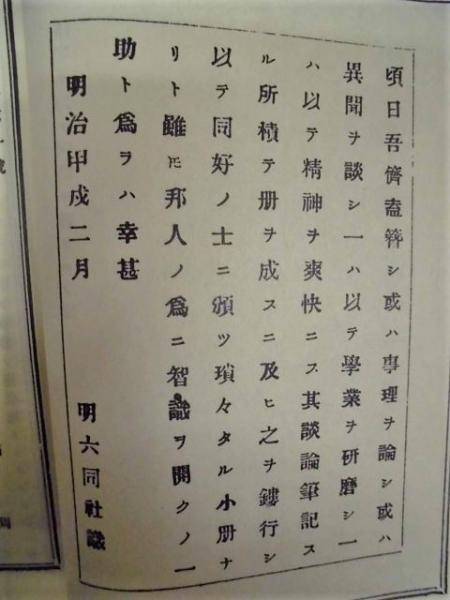 頃日吾儕盍簪シ或ハ事理ヲ論シ或ハ
異聞ヲ談シ一ハ以テ學業ヲ研磨シ一
ハ以テ精神ヲ爽快ニス其談論筆記ス
ル所積テ册ヲ成スニ及ヒ之ヲ鏤行シ
以テ同好ノ士ニ頒ツ瑣々タル小册ナ
リト雖𪜈邦人ノ爲ニ智識ヲ開クノ一
助ト爲ラハ幸甚
明治甲戌二月
明六同社識